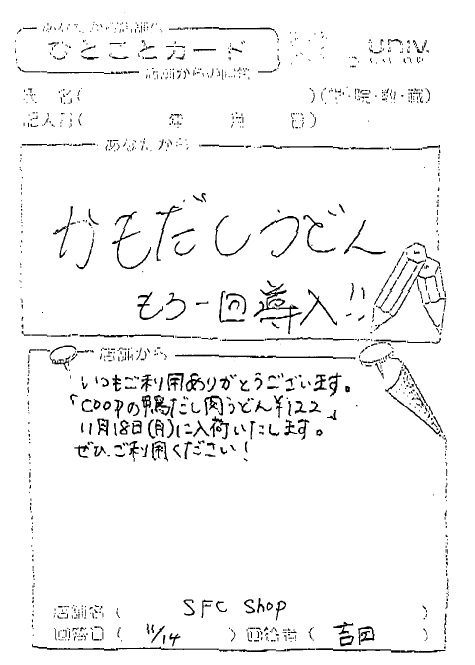 あなたから店舗へ
ひとことカード
店舗からの回答
univ.
CO-OP
氏 名( )(学・院・教・職)
記入日( 年 月 日)
あなたから
かもだしうどん
もう一回導入!!
店舗から
いつもご利用ありがとうございます。
「COOPの鴨だし肉うどん¥122」
11月18日(月)に入荷いたします。
ぜひ、ご利用ください!
店舗名( SFC Shop )
回答日( 11/14 ) 回答者( 吉田 )